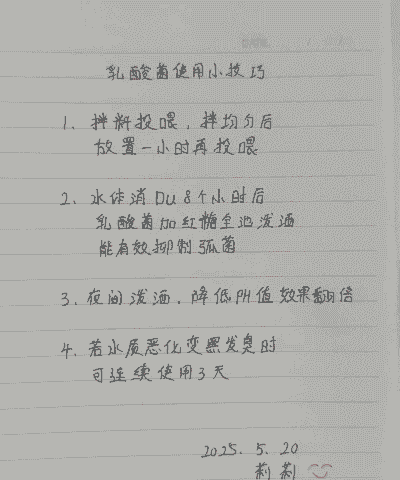 乳酸菌使用小技巧
1、拌料投喂，拌均匀后
放置一小时再投喂
2、水体消Du 8个小时后
乳酸菌加红糖全池泼洒
能有效抑制弧菌
3、夜间泼洒，降低PH值效果翻倍
4、若水质恶化变黑发臭时
可连续使用3天
2025.5.20
莉莉